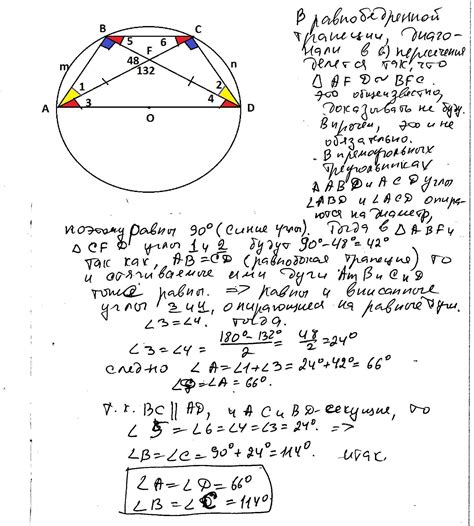 B
C
5
6
F
m
n
48
132
1
2
A
3
4
D
O
В равнобедренной
трапеции, диаго-
нали в (·) пересечения
делятся так, что
△ AFD ∾ BFC.
это общеизвестно,
доказывать не буду.
Впрочем, это и не
обязательно.
В прямоугольных
треугольниках
△ ABD и ACD углы
∠ABD и ∠ACD опира-
ются на диаметр,
поэтому равны 90° (синие углы). Тогда в △ABF и
△CFD углы 1 и 2 будут 90°-48°=42°
так как, AB=CD (равнобокая трапеция) то
и стягиваемые ими дуги AmB и CnD
тоже равны. => равны и вписанные
углы 3 и 4, опирающиеся на равные дуги.
∠3=∠4. тогда.
∠3=∠4= 180°-132° / 2 = 48 / 2 = 24°
следно ∠A=∠1+∠3=24°+42°=66°
∠D=∠A=66°.
т.к. BC || AD, и AC и BD-секущие, то
∠5=∠6=∠4=∠3=24°. =>
∠B=∠C=90°+24°=114°. итак
∠A=∠D=66°
∠B=∠C=114°